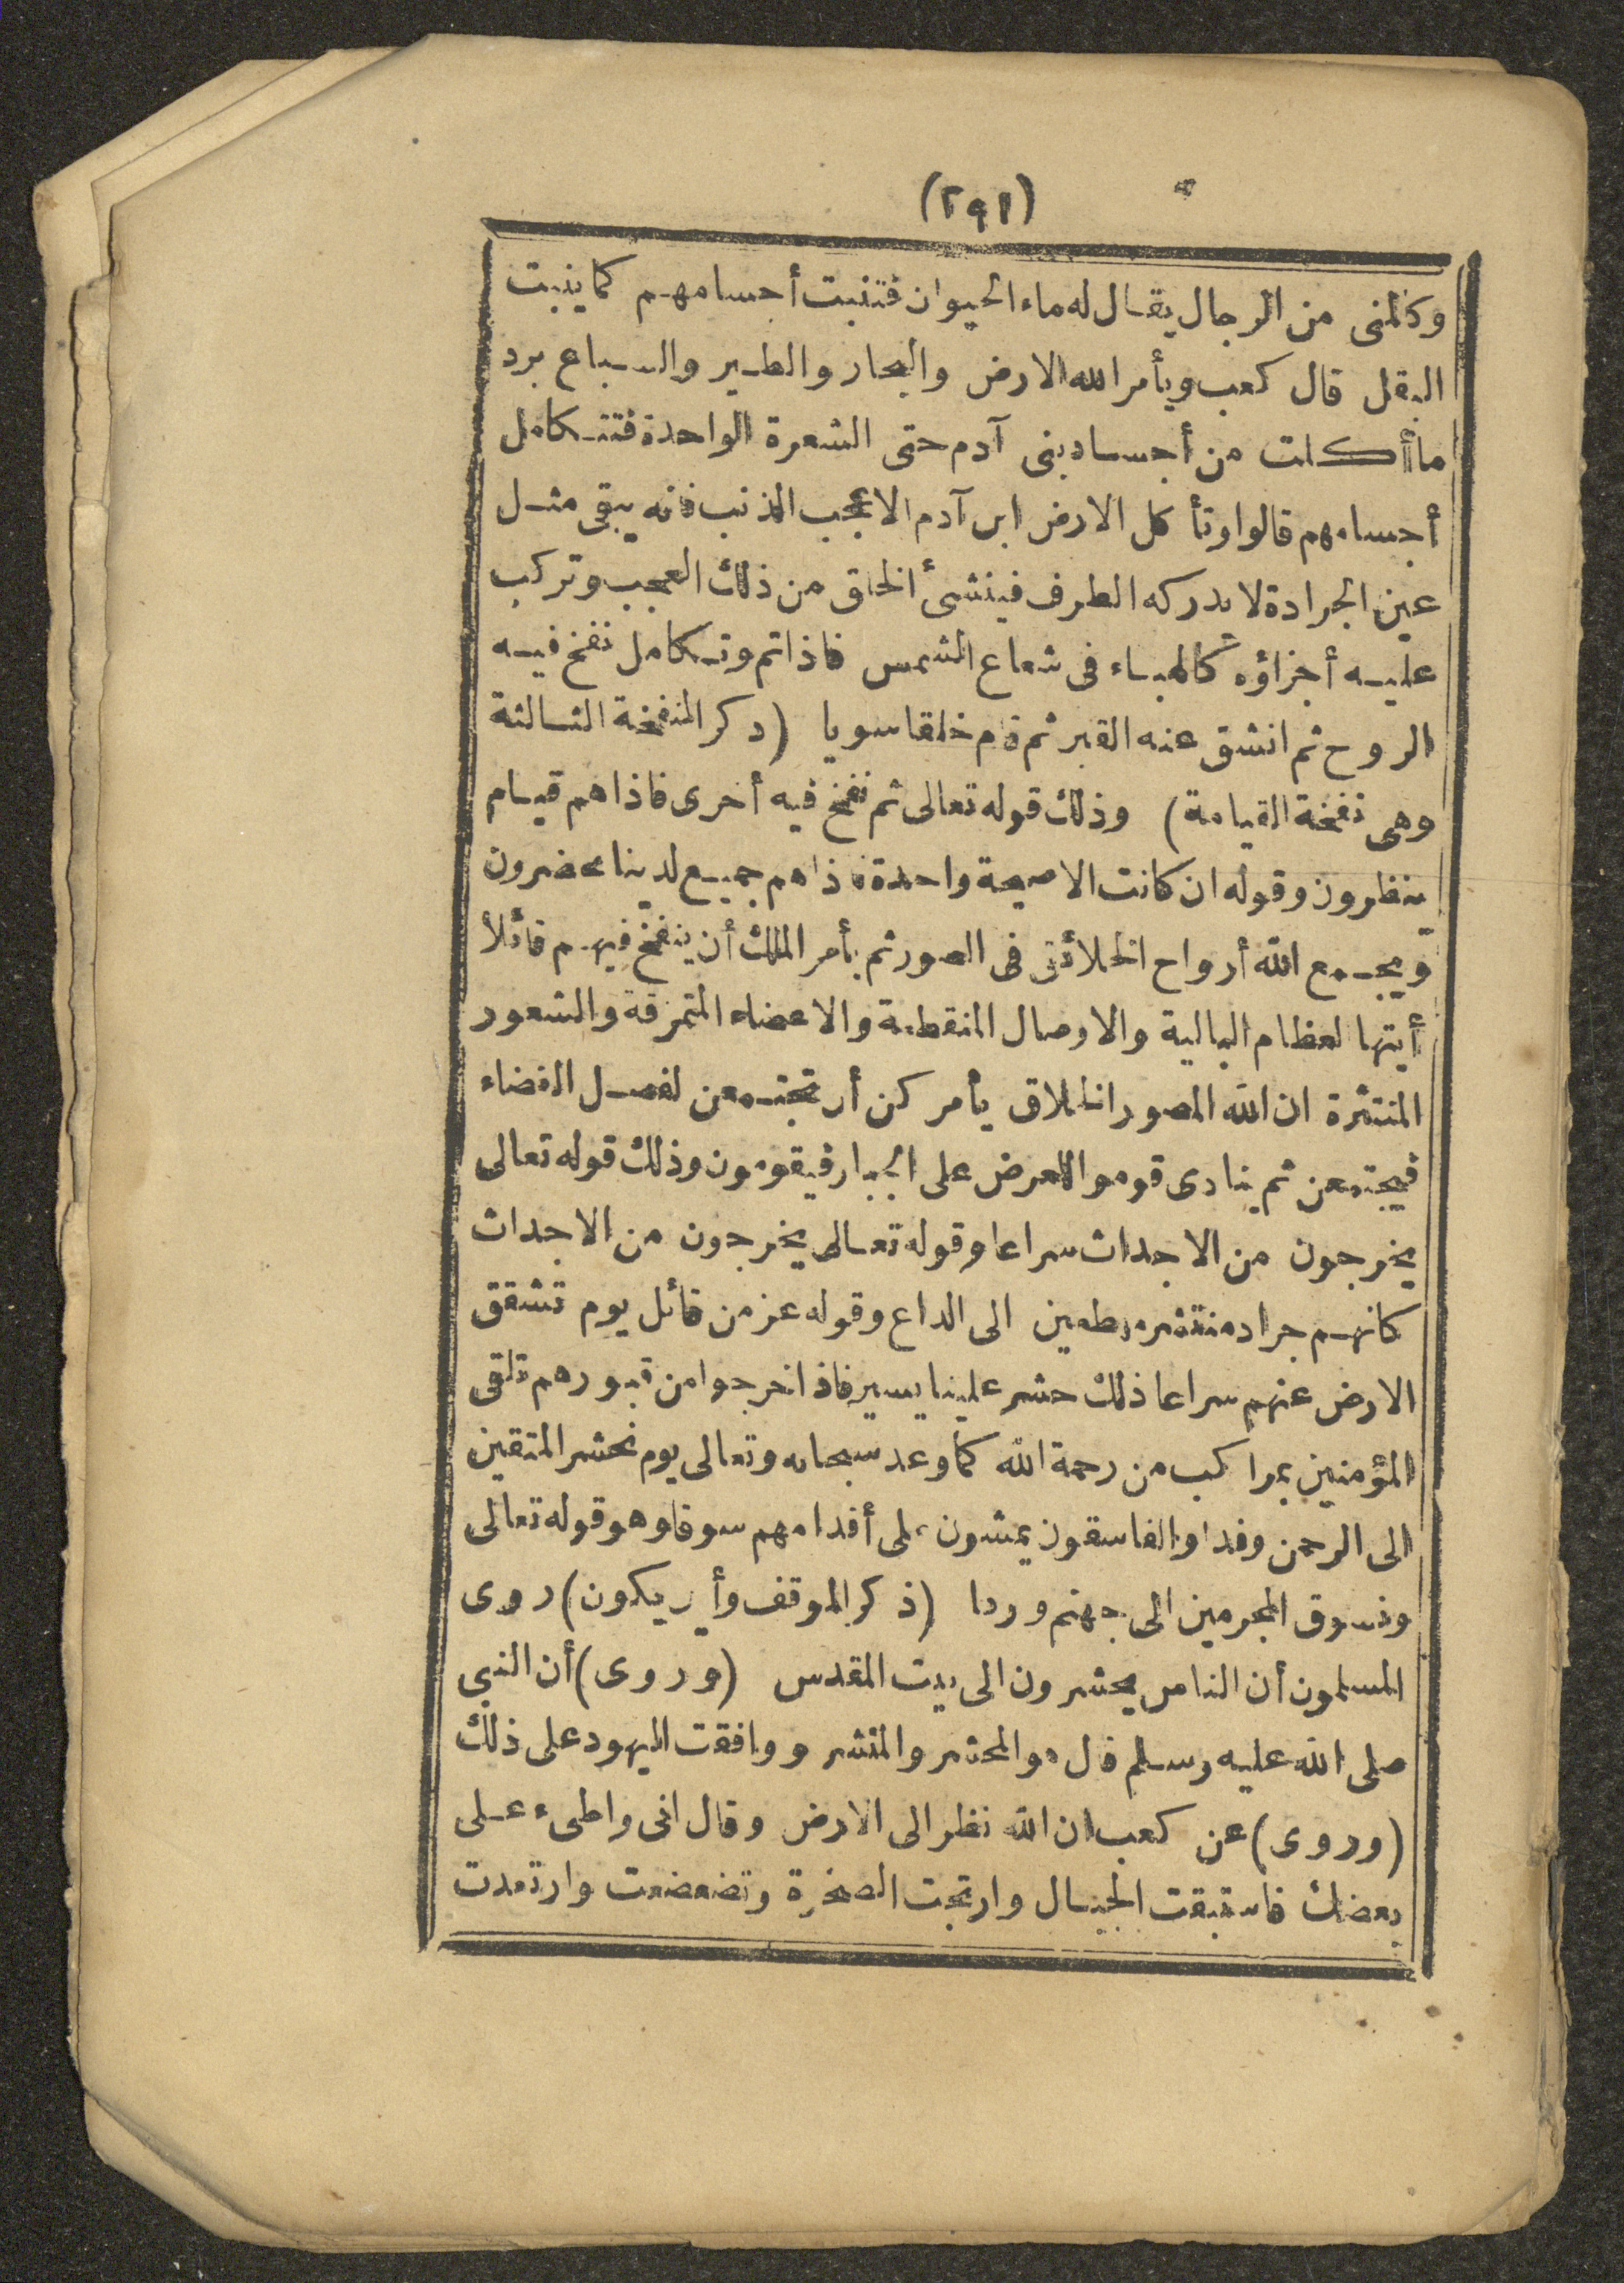 (٢٩١)
وكالمنى من الرجال يقال له ماء الحيوان فتنبت أجسامهم كما ينبت
البقل قال كعب ويأمر الله الارض والبحار والطير والسباع برد
ما أكلت من أجساد بنى آدم حتى الشعرة الواحدة فتتكامل
أجسامهم قالوا وتأكل الارض ابن آدم الا عجب الذنب فانه يبقى مثل
عين الجرادة لا يدركه الطرف فينشئ الخلق من ذلك العجب وتركب
عليه أجزاؤه كالهباء فى شعاع الشمس فاذا تم وتكامل نفخ فيه
الروح ثم انشق عنه القبر ثم قام خلقا سويا (ذكر النفخة الثالثة
وهى نفخة القيامة) وذلك قوله تعالى ثم نفخ فيه أخرى فاذا هم قيام
ينظرون وقوله ان كانت الا صيحة واحدة فاذا هم جميع لدينا محضرون
ويجمع الله أرواح الخلائق فى الصور ثم يأمر الملك أن ينفخ فيهم قائلا
أيتها لعظام البالية والاوصال المنقطعة والاعضاء المتمزقة والشعور
المنتثرة ان الله المصور الخلاق يأمركن أن تجتمعن لفصل القضاء
فيجتمعن ثم ينادى قوموا للعرض على الجبار فيقومون وذلك قوله تعالى
يخرجون من الاجداث سراعا وقوله تعالى يخرجون من الاجداث
كانهم جراد منتشر مهطعين الى الداع وقوله عز من قائل يوم تشقق
الارض عنهم سراعا ذلك حشر علينا يسير فاذا خرجوا من قبورهم تلقى
المؤمنين بمراكب من رحمة الله كما وعد سبحانه وتعالى يوم نحشر المتقين
الى الرحمن وفدا والفاسقون يمشون على أقدامهم سوقا وهو قوله تعالى
ونسوق المجرمين الى جهنم وردا (ذكر الموقف وأين يكون) روى
المسلمون أن الناس يحشرون الى بيت المقدس (وروى) أن النبى
صلى الله عليه وسلم قال هو المحشر والمنشر ووافقت اليهود على ذلك
(وروى) عن كعب ان الله نظر الى الارض وقال انى واطىء على
بعضك فاستبقت الجبال وارتجت الصخرة وتضعضعت وارتعدت